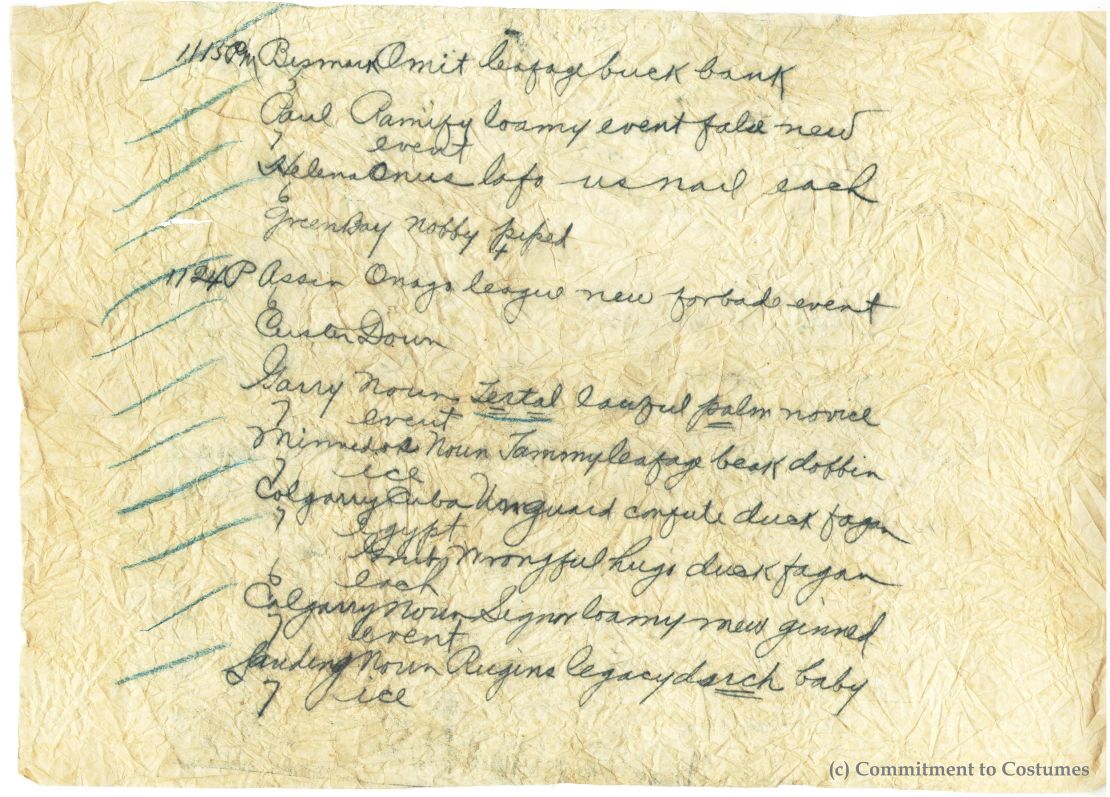 1113PM Bismark Omit leafage buck bank
Paul Ramify loamy event false new
7 event
Helena Onus lofo us nail each
Green Bay nobby piped
1124P Assin Onago league new forbade event
Custer Down
Garry Noun Tertal lawful palm novice
7 event
Minnedos Noun Jammyleafage beak dobbin
7 ice
Calgarry Cuba Unguard confute duck fagan
7 Egypt
Wrongful hugo duck fagan
each
Calgarry Noun Signor loamy mew ginned
7 event
Landing Noun Rugins legacy darch baby
7 ice
(c) Commitment to Costumes